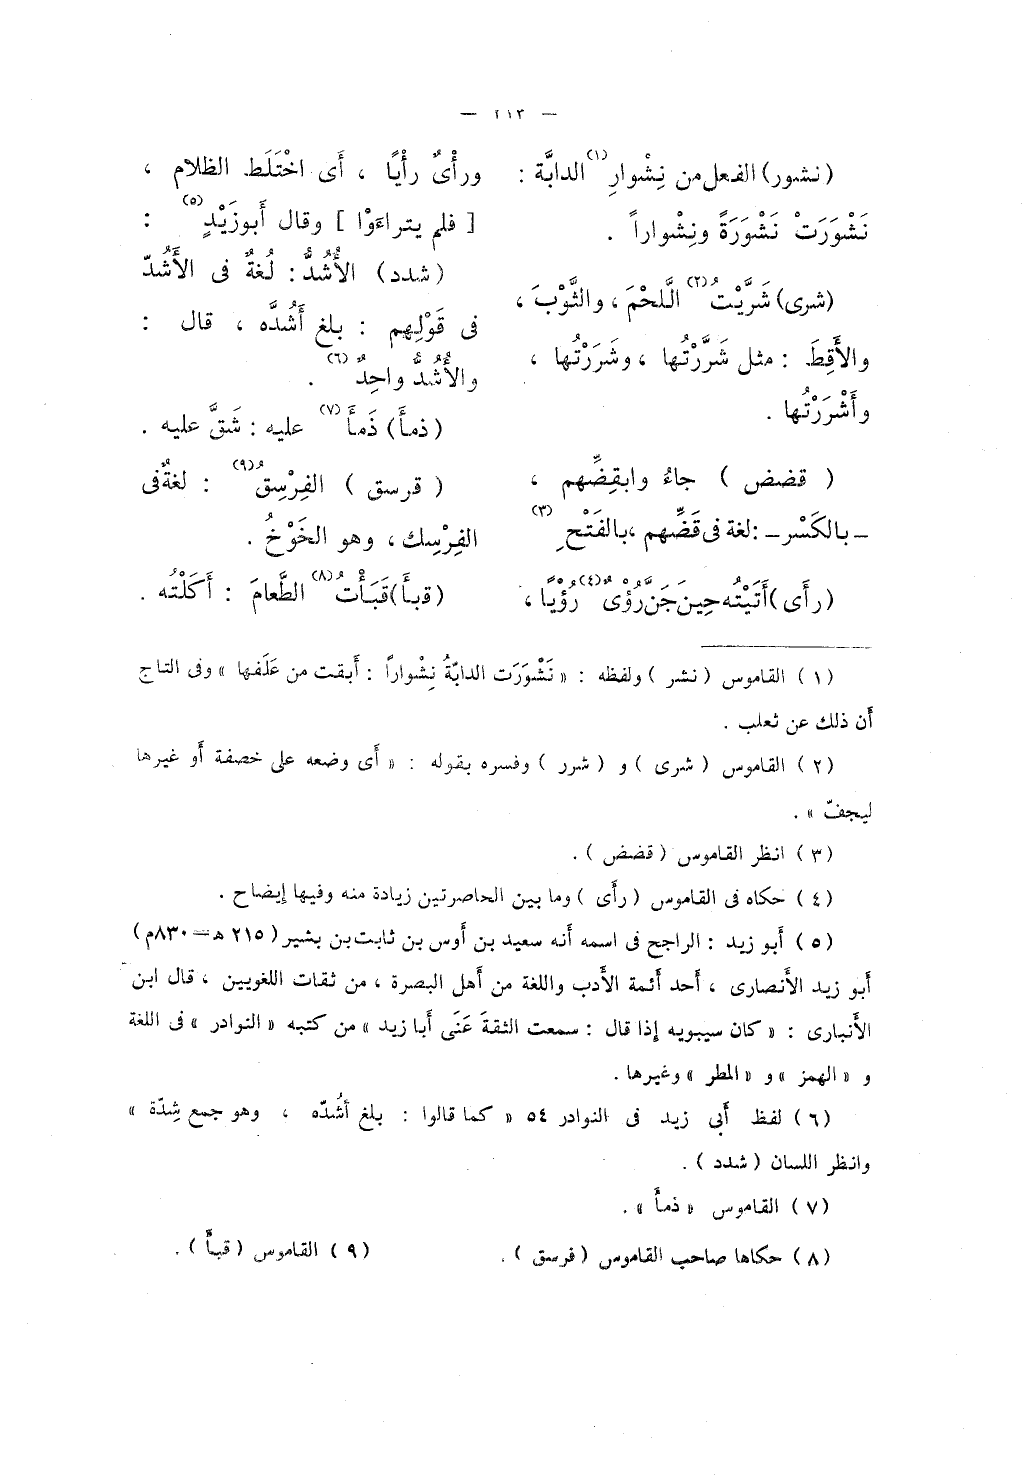 — ٢١٣ —
(نشور) الفعل من نِشْوارِ(١) الدابَّة :
نَشْوَرَتْ نَشْوَرَةً ونِشْواراً .
(شرى) شَرَّيْتُ(٢) الَّلحْمَ ، والثَّوْبَ ،
والأَقِطَ : مثل شَرَّرْتُها ، وشَرَرْتُها ،
وأَشْرَرْتُها .
( قضض ) جاءُ وابقِضِّهم ،
ـ بالكَسْر ـ : لغة فى قَضِّهم ، بالفَتْحِ(٣)
(رأى) أَتَيْتُه حِينَ جَنَّ رُؤْىٌ(٤) رُؤْيًا ،
ورأْىٌ رأْيًا ، أَى اخْتَلَط الظلام ،
[ فلم يتراءَوْا ] وقال أَبوزَيْدٍ(٥) :
(شدد) الأُشُدُّ : لُغةٌ فى الأَشُدّ
فى قَوْلِهم : بلغ أَشُدَّه ، قال :
والأُشُدُّ واحِدٌ(٦) .
(ذمأ) ذَمأَ(٧) عليه : شَقَّ عليه .
( قرسق ) الفِرْسِقُ(٩) : لغةٌ فى
الفِرْسِك ، وهو الخَوْخُ .
(قبأ) قَبَأْتُ(٨) الطَّعامَ : أَكَلْتُه .
(١) القاموس ( نشر ) ولفظه : « نَشْوَرَت الدابّةُ نِشْواراً : أَبقت من عَلَفها » وفى التاج
أَن ذلك عن ثعلب .
(٢) القاموس ( شرى ) و ( شرر ) وفسره بقوله : « أَى وضعه على خصفة أَو غيرها
ليجفّ » .
(٣) انظر القاموس ( قضض ) .
(٤) حكاه فى القاموس ( رأى ) وما بين الحاصرتين زيادة منه وفيها إيضاح .
(٥) أَبو زيد : الراجح فى اسمه أَنه سعيد بن أَوس بن ثابت بن بشير ( ٢١٥ هـ = ٨٣٠م )
أَبو زيد الأَنصارى ، أَحد أَئمة الأَدب واللغة من أَهل البصرة ، من ثقات اللغويين ، قال ابن
الأَنبارى : « كان سيبويه إذا قال : سمعت الثقةَ عَنَى أَبا زيد » من كتبه « النوادر » فى اللغة
و « الهمز » و « المطر » وغيرها .
(٦) لفظ أَبى زيد فى النوادر ٥٤ « كما قالوا : بلغ أَشُدّه ، وهو جمع شِدّة »
وانظر اللسان ( شدد ) .
(٧) القاموس « ذمأَ » .
(٨) حكاها صاحب القاموس ( فرسق ) .
(٩) القاموس ( قبأَ ) .